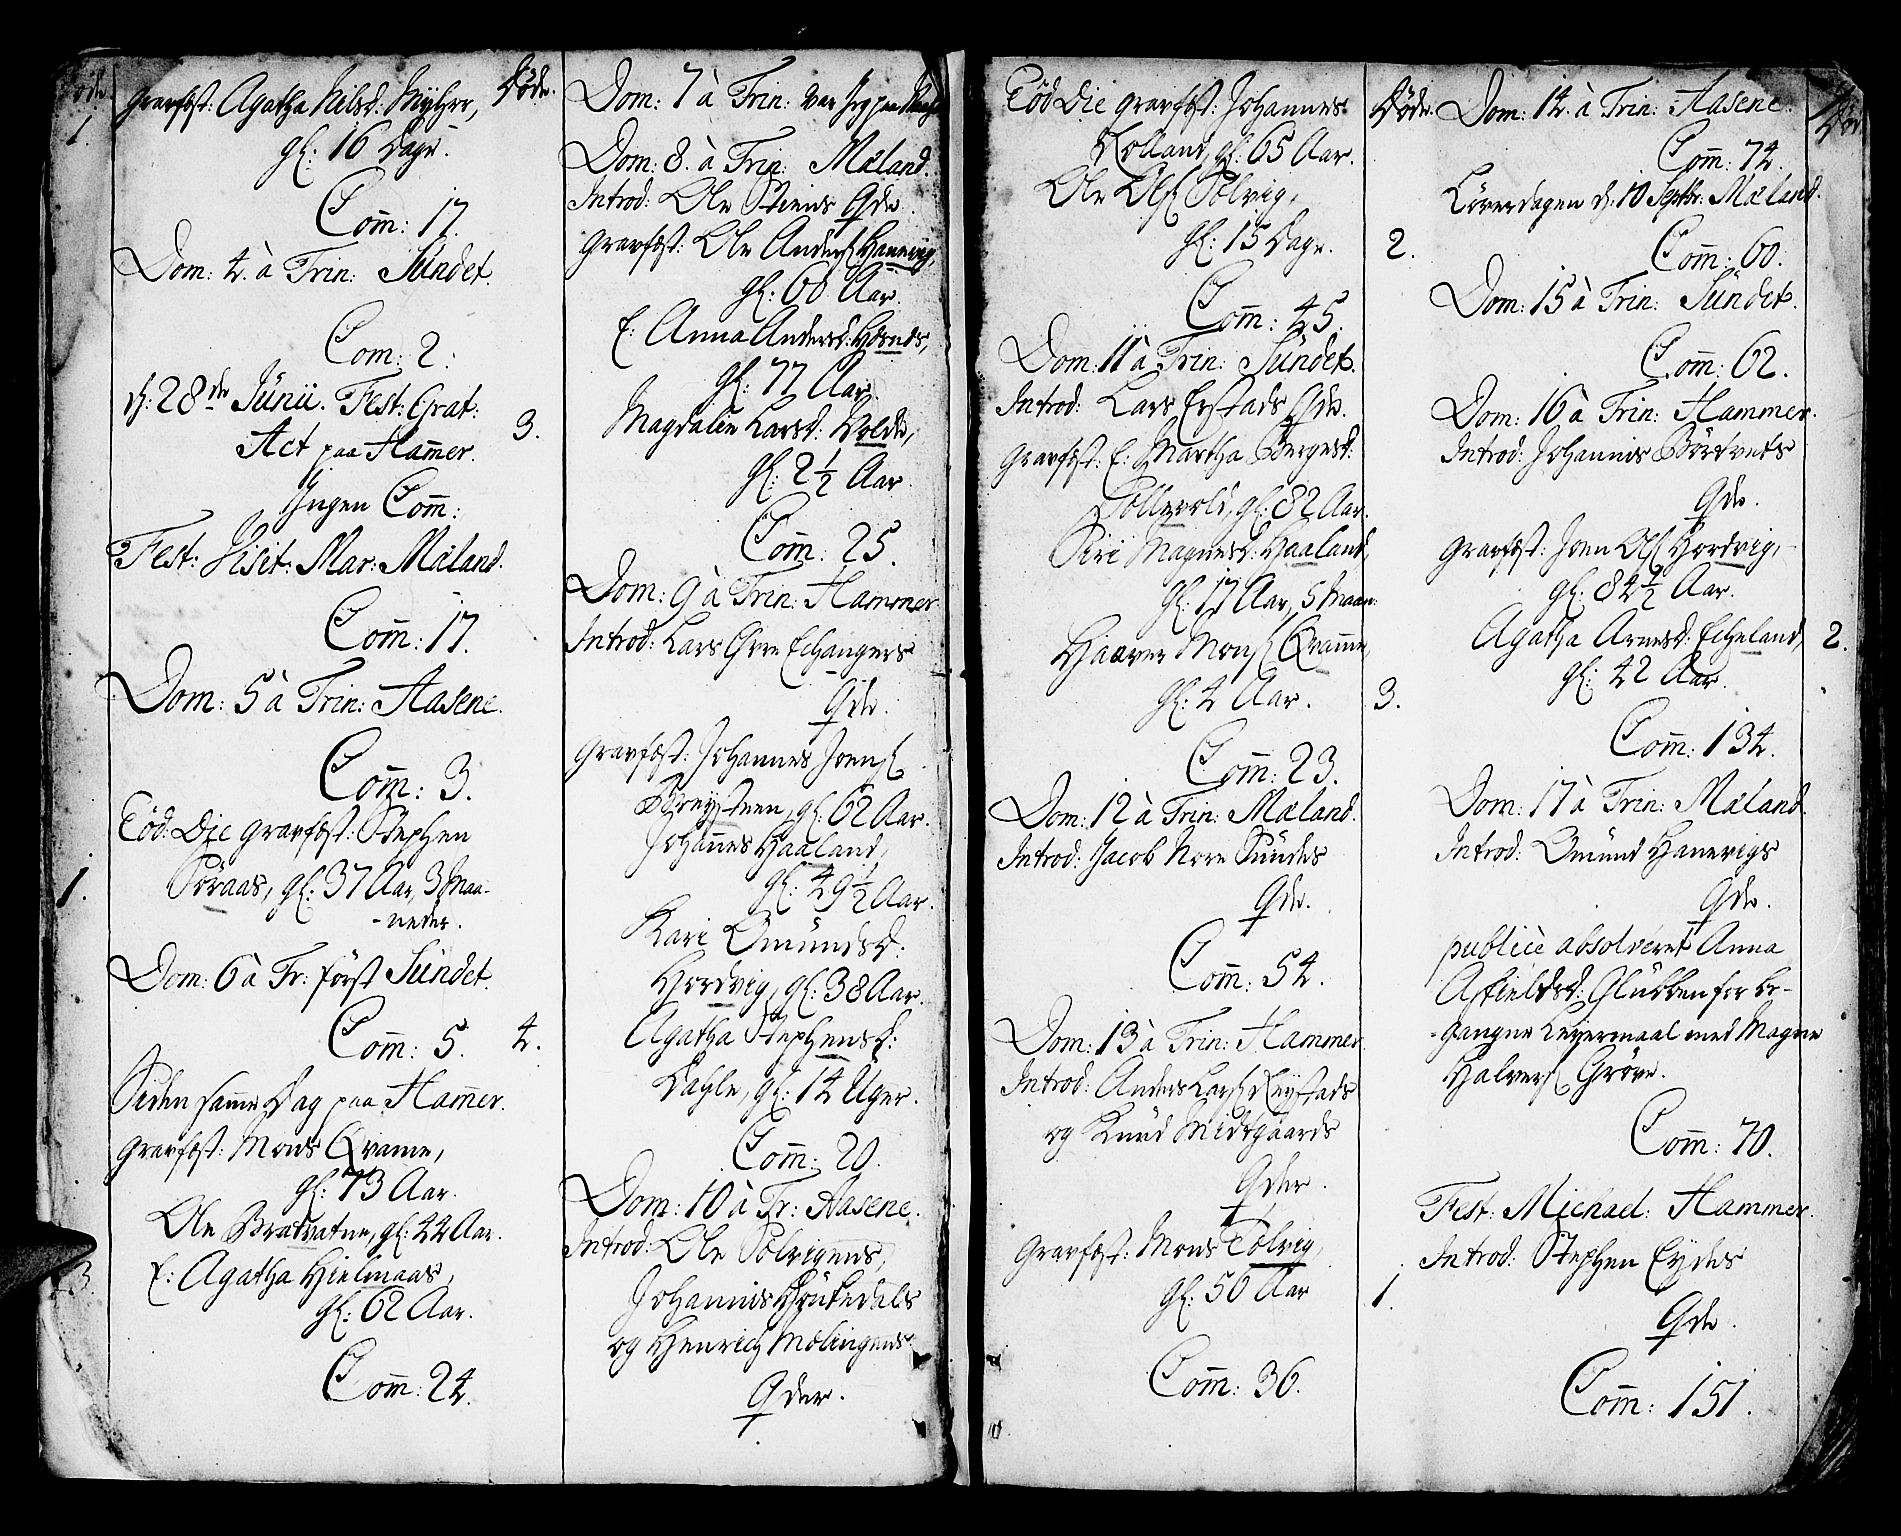 Døde.
Gravfæst: Agatha Nilsd: Myhre,
1.
gl: 16 Dage.
Com̄: 17.
Dom: 4. à Trin: Sündet.
Com: 2:
d: 28de Jünii. Fest: Grat:
Act paa Ham̄er.
Ingen Com̄:
Fest: Visit: Mar: Mæland.
Com̄: 17.
Dom: 5 à Trin: Aasene.
Com̄: 3.
Eod: Die gravfæst: Stephen
Søraas, gl: 37 Aar, 3 Maa-
1.
-neder.
Dom: 6 à Tr: først Sündet.
Com̄: 5.
Siden sam̄e Dag paa Ham̄er.
Gravfæst: Mons Qvam̄e,
gl: 73 Aar.
Ole Bratvatne, gl: 44 Aar.
E: Agatha Hielmaas,
3.
gl: 62 Aar.
Com̄: 24.
Døde.
Dom: 7 à Trin: var Jeg paa
Dom: 8. à Trin: Mæland.
Introd: Ole Steens Qde.
Gravfæst: Ole Anders: Hanevig,
gl: 60 Aar.
E: Anna Andersd: Hosnds,
gl: 77 Aar.
Magdalen Larsd: Volde,
3.
gl: 2½ Aar.
Com̄: 25.
Dom: 9 à Trin: Hammer.
Introd: Lars Øvre Echangers
Qde.
Gravfæst: Johannes Joens:
Breysteen, gl: 62 Aar.
Johan̄es Haaland,
gl: 49½ Aar.
Kari Omündsd:
Hordvig, gl: 38 Aar.
Agatha Stephensd:
4.
Dahle, gl: 14 Uger.
Com̄: 20.
Dom: 10 à Tr: Aasene.
Introd: Ole Sølvigens,
Johannes Hÿsdedals
og Henrich Mølingens
Qder.
Eod Die gravfæst: Johannes
Rolland, gl: 65 Aar.
Ole Ols: Sølvig,
gl: 15 Dage.
2.
Com̄: 45.
Dom: 11 à Trin: Sündet.
Introd: Lars Erstads Qde.
Gravfæst: E: Martha Børgesd:
Tollevold, gl: 82 Aar.
Siri Magnesd: Haaland,
gl: 17 Aar, 5 Maan:
Haaver Mons: Qvam̄e,
gl: 4 Aar.
3.
Com̄: 23.
Dom: 12 à Trin: Mæland.
Introd: Jacob Nore Sündes
Qde.
Com̄: 54.
Dom: 13 à Trin: Hammer.
Introd: Anders Lars: Reystads
og Knüd Midtgaards
Qder.
Gravfæst: Mons Tolvig,
gl: 56 Aar
1.
Com̄: 36.
Døde.
Dom: 14 à Trin: Aasene.
Com̄: 74.
Løverdagen d: 10 Septbr: Mæland.
Com̄: 60.
Dom: 15 à Trin: Sündet.
Com̄: 62.
Dom: 16 à Trin: Hammer.
Introd: Johannes Børtveds
Qde.
Gravfæst: Joen Ols: Hordvig,
gl: 84½ Aar.
Agatha Arnesd: Echeland,
2.
gl: 42 Aar.
Com̄: 134.
Dom: 17 à Trin: Mæland.
Introd: Omünd Hanevigs
Qde.
publicè absolveret Anna
Asieldsd: Glübben for be-
-gangne Leyermaal med Magne
Halvers: Grøve.
Com̄: 70.
Fest: Michael: Hammer.
Introd: Stephen Eydes
Qde.
Com̄: 151.